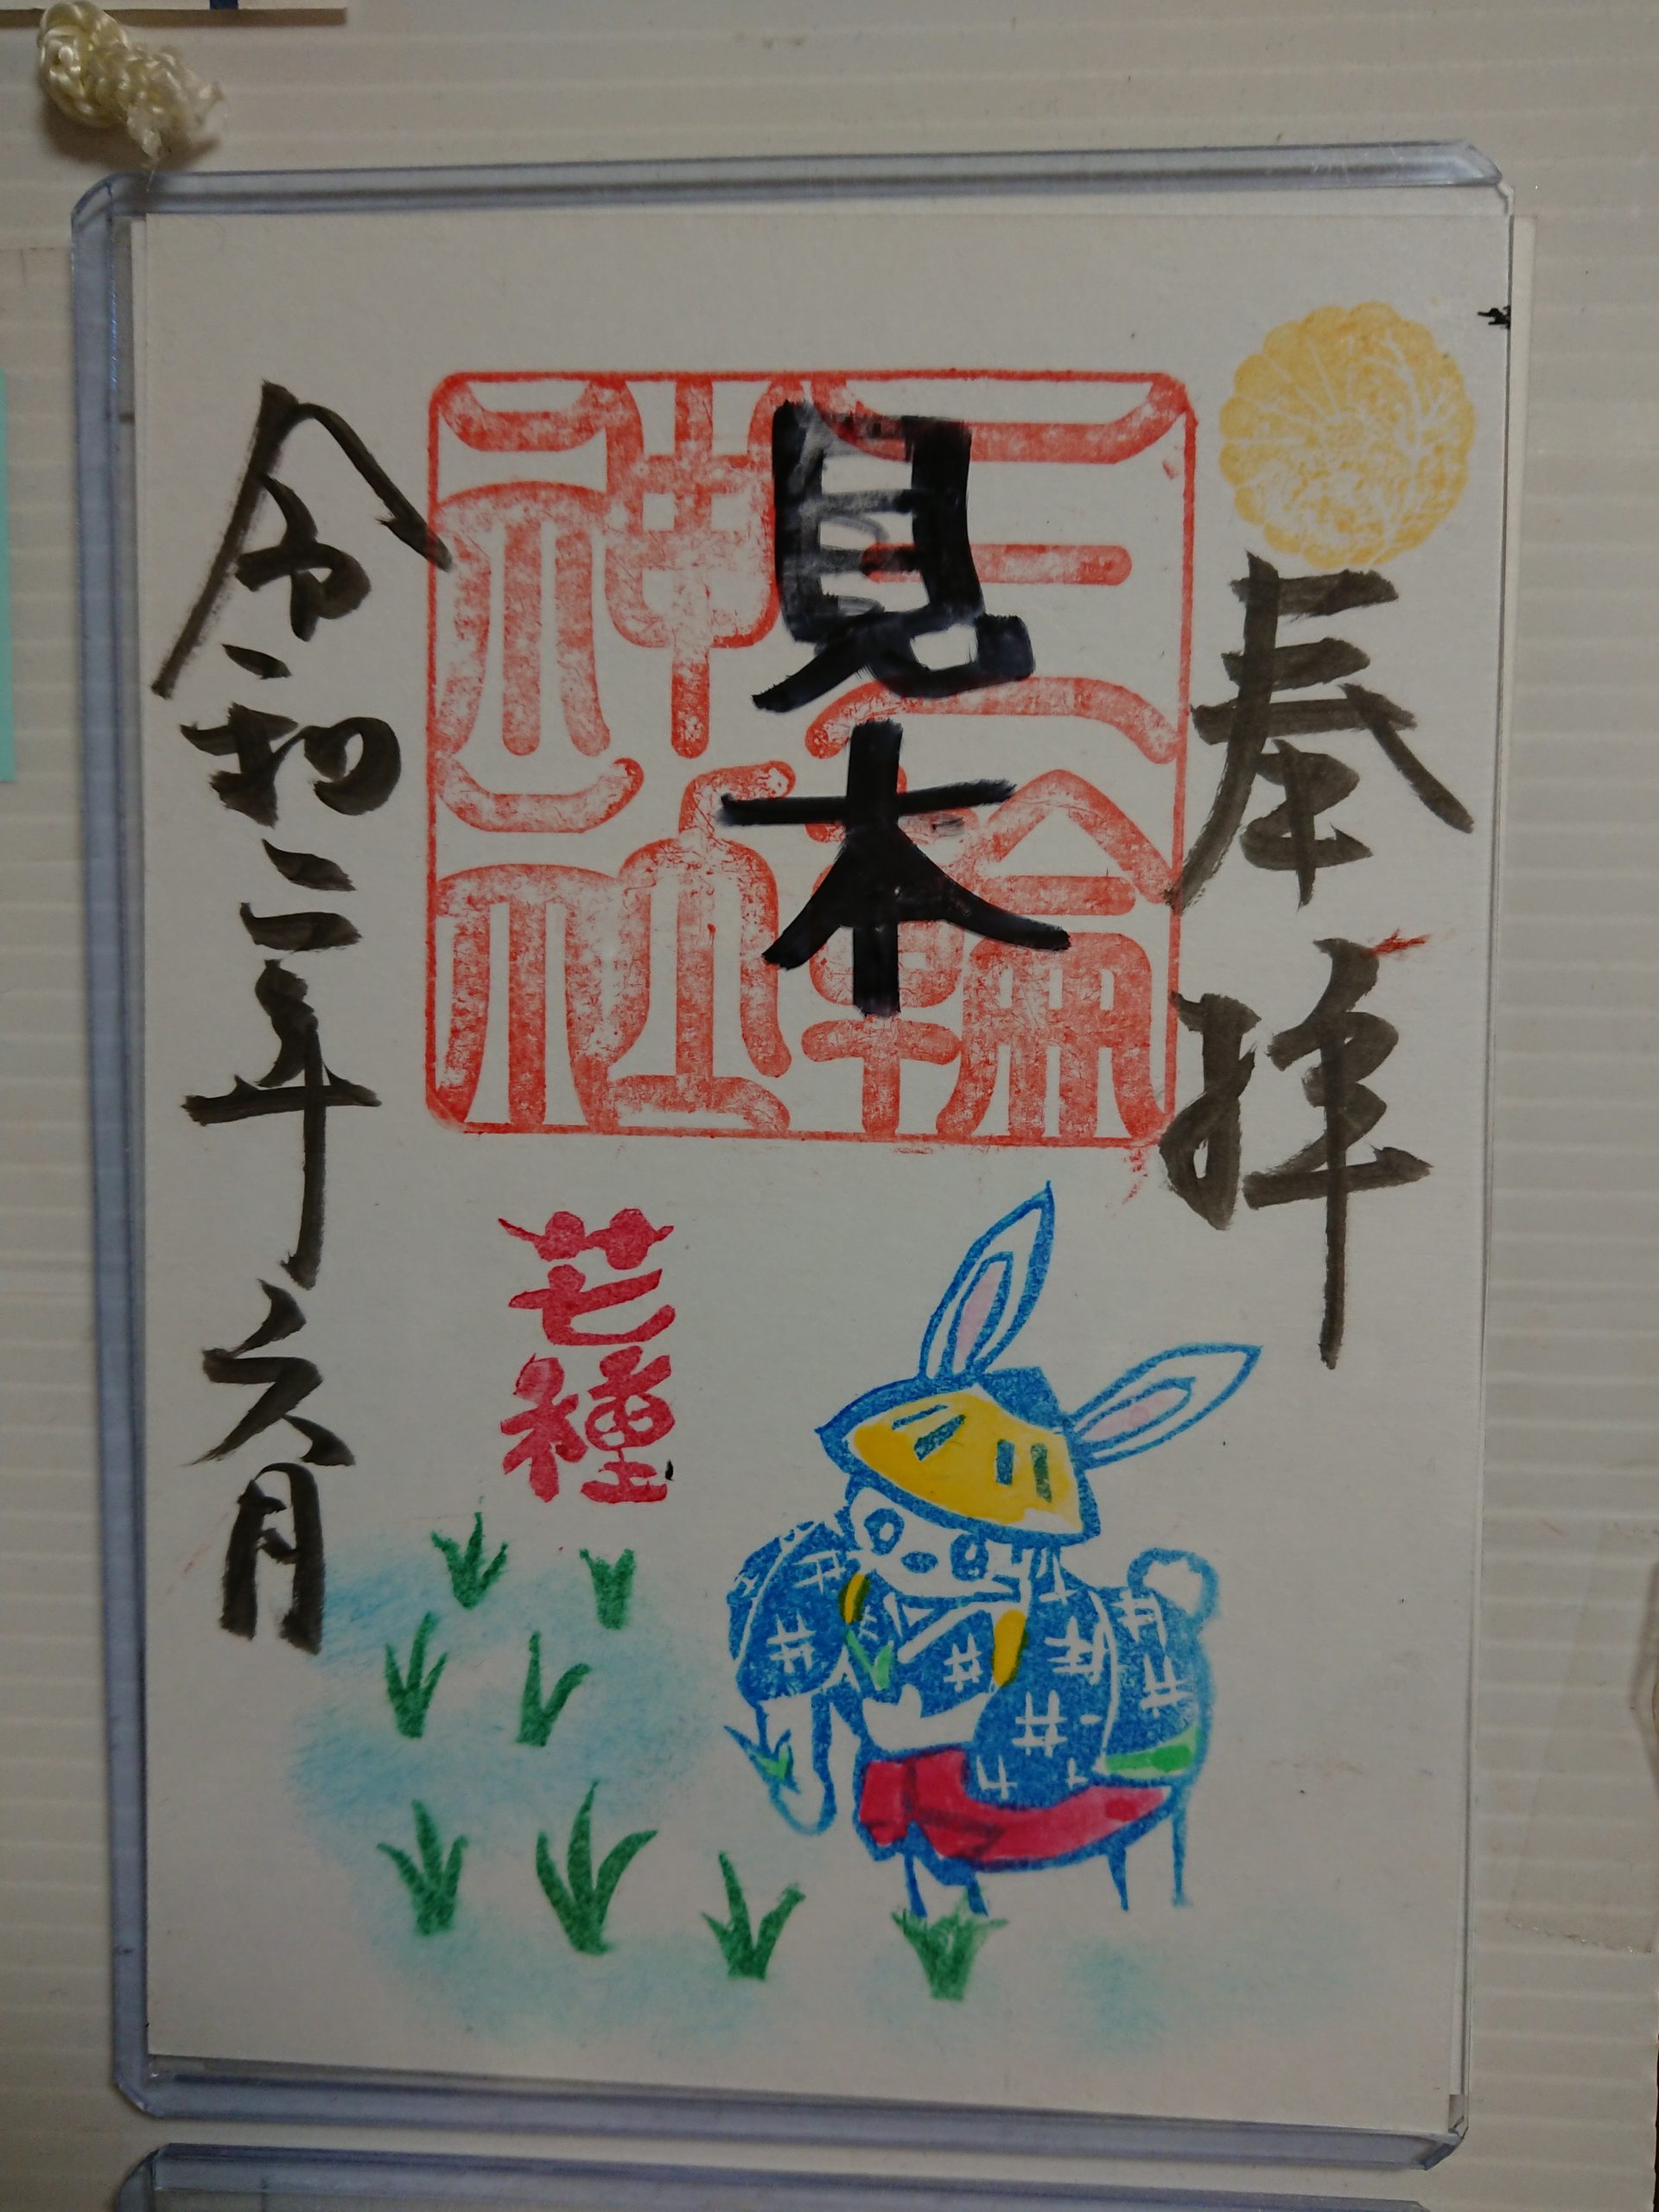 奉拝
三輪
神社
見本
芒種
令和二年六月